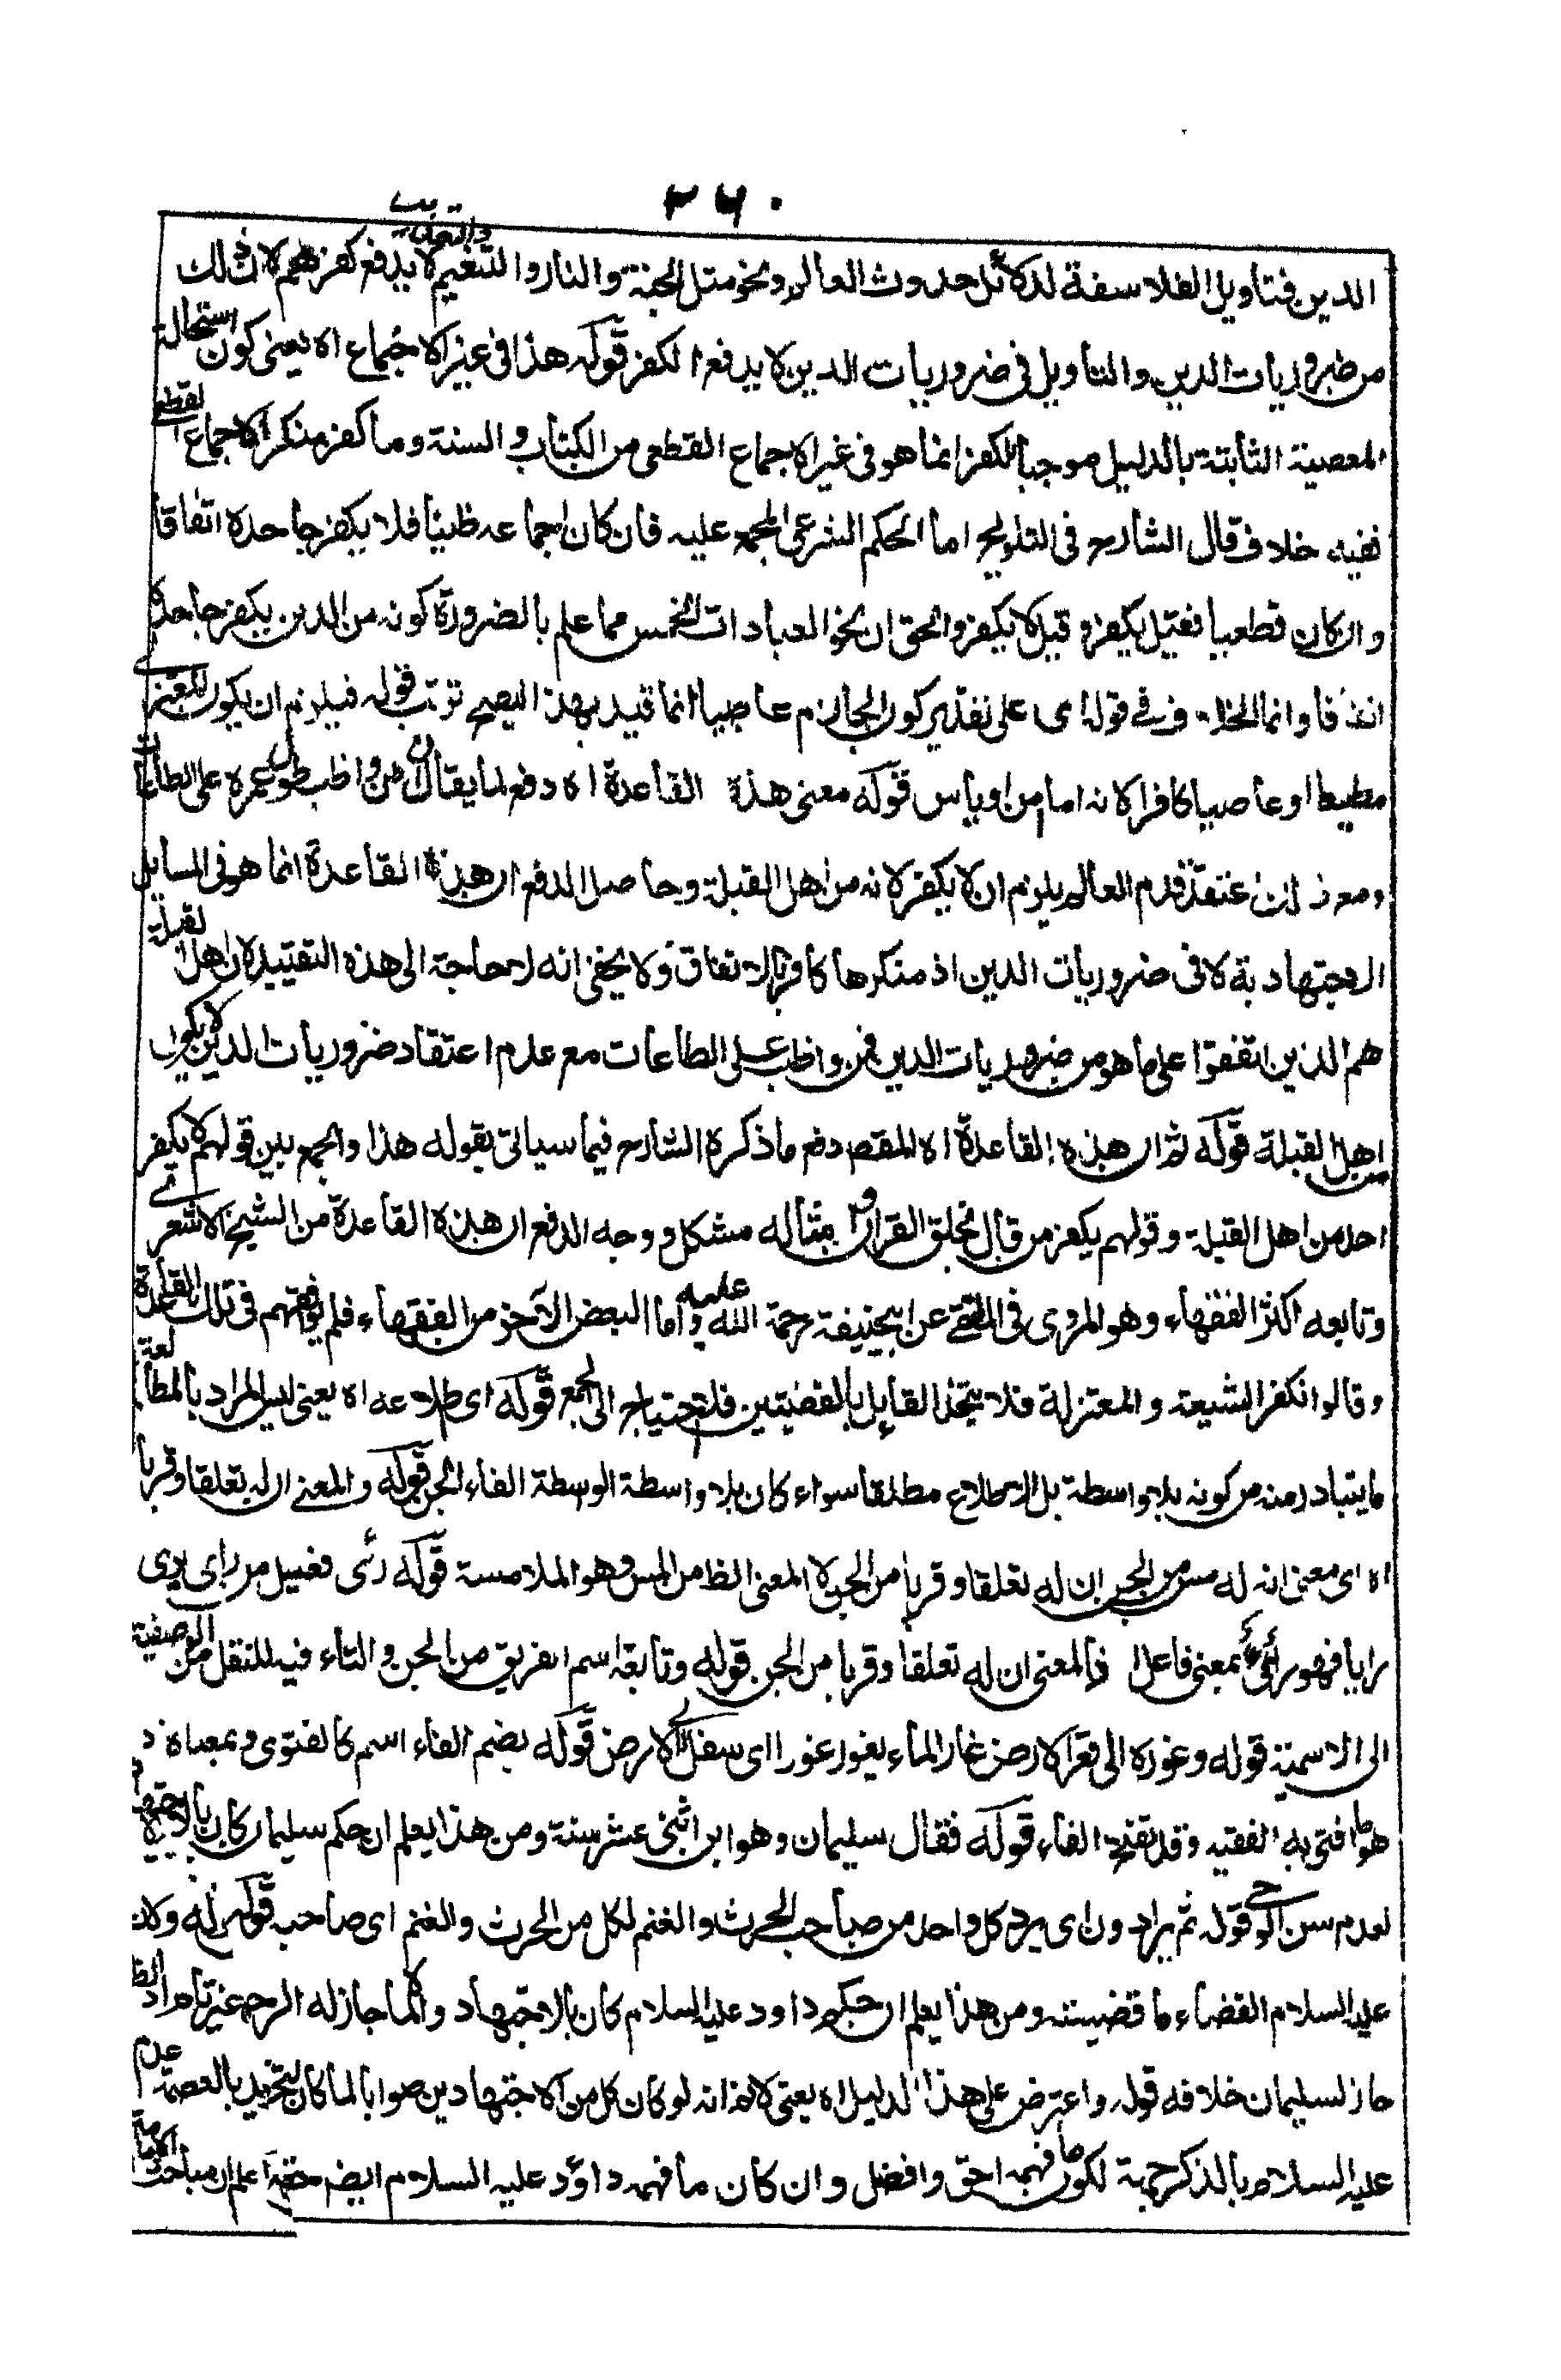 ٢٦٠
الدين فتأويل الفلاسفة لدلائل حدوث العالم ونحو مثل الجنة والنار والتنعيم والتعذيب لا يدفع كفرهم لان ذلك
من ضروريات الدين والتأويل فى ضروريات الدين لا يدفع الكفر قوله هذا فى غير الاجماع اه يعنى كون استحالة
المعصية الثابتة بالدليل موجبا للكفر انما هو فى غير الاجماع القطعى من الكتاب والسنة وما كفر منكر الاجماع القطعى
ففيه خلاف قال الشارح فى التلويح اما الحكم الشرعى المجمع عليه فان كان اجماعه ظنيا فلا يكفر جاحده اتفاقا
وان كان قطعيا فقيل يكفر وقيل لا يكفر والحق ان نحو العبادات الخمس مما علم بالضرورة كونه من الدين يكفر جاحده
اتفاقا وانما الخلاف فى قوله اى على تقدير كون الجازم عاصيا انما قيد بهذا ليصح ترتب قوله فيلزم ان يكون المعتزلى
مطيعا او عاصيا كافرا لانه اما من او يأس قوله معنى هذه القاعدة اه دفع لما يقال ان من واظب طول عمره على الطاعات
ومع ذلك اعتقد قدم العالم يلزم ان لا يكفر لانه من اهل القبلة وحاصل الدفع ان هذه القاعدة انما هو فى المسايل
الاجتهادية لا فى ضروريات الدين اذ منكرها كافر بالاتفاق ولا يخفى انه لا حاجة الى هذه التقييد لان اهل القبلة
هم الذين اتفقوا على ما هو من ضروريات الدين فمن واظب على الطاعات مع عدم اعتقاد ضروريات الدين لا يكون
من اهل القبلة قوله ثم ان هذه القاعدة اه المقصد دفع ما ذكره الشارح فيما سياتى بقوله هذا والجمع بين قولهم لا يكفر
احد من اهل القبلة وقولهم يكفر من قال بخلق القران وامثاله مشكل ووجه الدفع ان هذه القاعدة من الشيخ الاشعرى
وتابعه اكثر الفقهاء وهو المروى فى المنتقى عن ابيحنيفة رحمة الله عليه واما البعض الآخر من الفقهاء فلم يوافقهم فى تلك القاعدة
وقالوا نكفر الشيعة والمعتزلة فلا يتحد القايل بالقضيتين فلا احتياج الى الجمع قوله اى اطلاعه اه يعنى ليس المراد بالمطالعة
ما يتبادر منه من كونه بلا واسطة بل الاطلاع مطلقا سواء كان بلا واسطة الوسطة القاء الجن قوله والمعنى ان له تعلقا وقربا
اه اى معنى انه له مس من الجن ان له تعلقا وقربا من الجن لا المعنى الظ من المس وهو الملامسة قوله رئى فعيل من راى يرى
رايا فهو رئى بمعنى فاعل فالمعنى ان له تعلقا وقربا من الجن قوله وتابعة اسم لفريق من الجن والتاء فيه للنقل من الوصفية
الى الاسمية قوله وغوره الى قعر الارض غار الماء يغور غورا اى سفل فى الارض قوله بضم الفاء اسم كالفتوى وبمعناه و
هو ما افتى به الفقيه وقد يفتح الفاء قوله فقال سليمان وهو ابن اثنى عشر سنة ومن هذا يعلم ان حكم سليمان كان بالاجتهاد
لعدم سن الوحى قوله ثم يرادون اى يرد كل واحد من صاحب الحرث والغنم لكل من الحرث والغنم اى صاحبه قوله
عليه السلام القضاء ما قضيته ومن هذا يعلم ان حكم داود عليه السلام كان بالاجتهاد والا لما جاز له الرجوع
جاز لسليمان خلافه قوله واعترض على هذا الدليل اه يعنى لا نم انه لو كان كل من الاجتهادين صوابا لما كان
عليه السلام بالذكر جهة لكون ما فهمه احق وافضل وان كان ما فهمه داؤد عليه السلام ايضم حقا اعلم ان مباحث الامامة